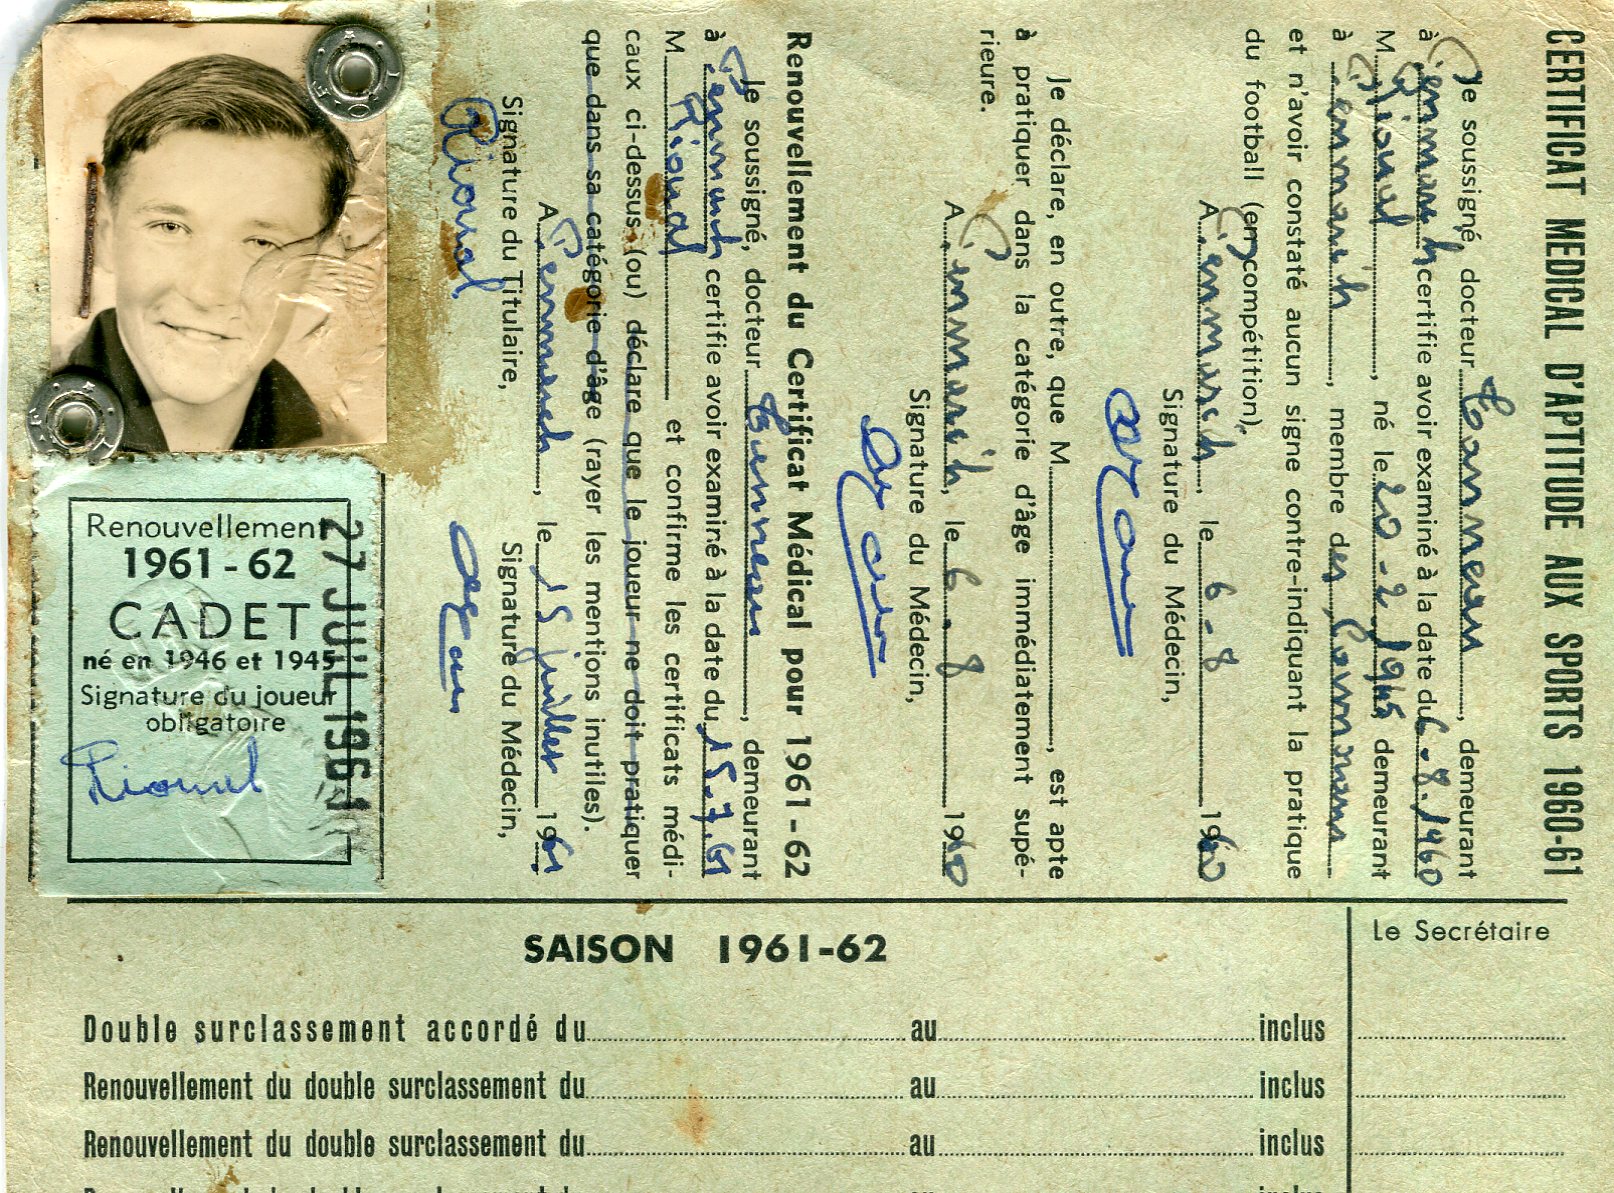 CERTIFICAT MEDICAL D'APTITUDE AUX SPORTS 1960-61
Je soussigné, docteur demeurant
à Penmarch certifie avoir examiné à la date du 6-8-1960
M. Rioual, né le 20-2-1945, demeurant
à Penmarch, membre des
et n'avoir constaté aucun signe contre-indiquant la pratique
du football (en compétition).
A Penmarch, le 6-8 1960
Signature du Médecin,
Je déclare, en outre, que M , est apte
à pratiquer dans la catégorie d'âge immédiatement supé-
rieure.
A Penmarch, le 6-8 1960
Signature du Médecin,
Renouvellement du Certificat Médical pour 1961-62
Je soussigné, docteur , demeurant
à Penmarch certifie avoir examiné à la date du 15.7.61
M Rioual et confirme les certificats médi-
caux ci-dessus (ou) déclare que le joueur ne doit pratiquer
que dans sa catégorie d'âge (rayer les mentions inutiles).
A Penmarch, le 15 juillet 1961
Signature du Titulaire, Signature du Médecin,
Rioual
Renouvellement
1961-62
CADET
né en 1946 et 1945
Signature du joueur
obligatoire
Rioual
27 JUIL 1961
Le Secrétaire
SAISON 1961-62
Double surclassement accordé du au inclus
Renouvellement du double surclassement du au inclus
Renouvellement du double surclassement du au inclus